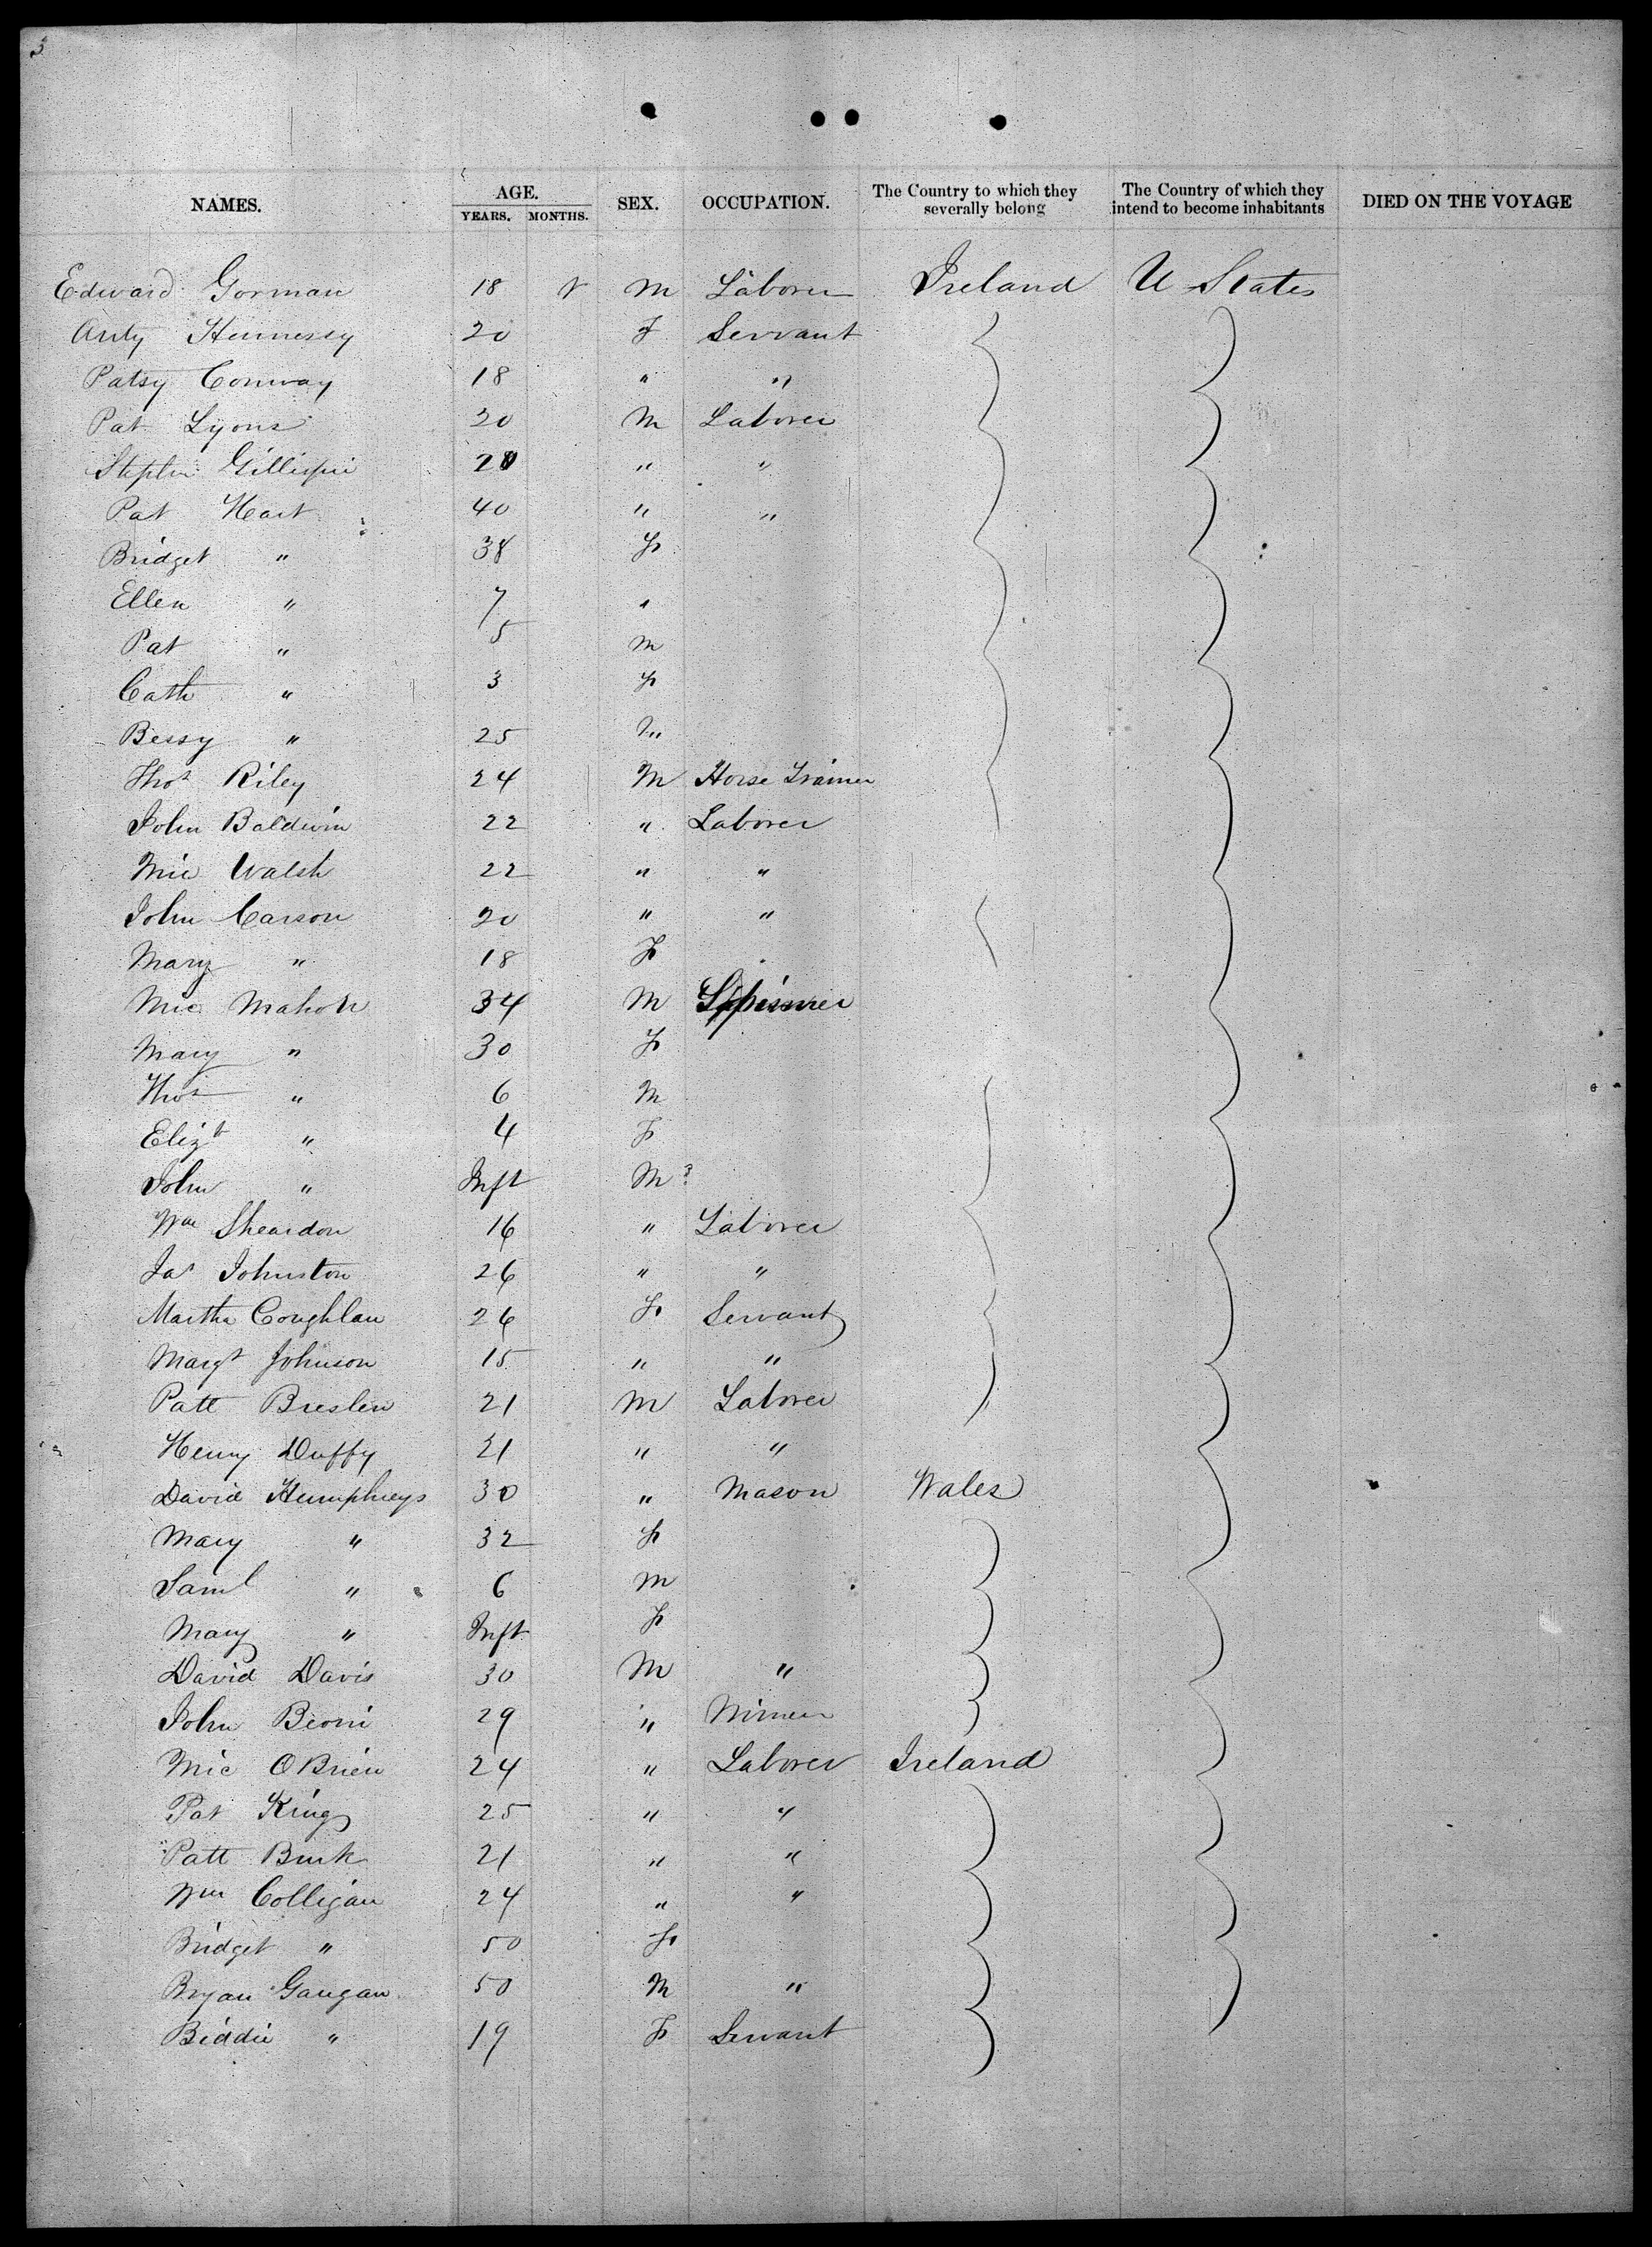 3
NAMES. AGE. YEARS. MONTHS. SEX. OCCUPATION. The Country to which they severally belong The Country of which they intend to become inhabitants DIED ON THE VOYAGE
Edward Gorman 18 M Laborer Ireland U States
Anty Hennessy 20 F Servant
Patsy Conway 18 " "
Pat Lyons 20 M Laborer
Gillispie " "
Pat Hart 40 " "
Bridget " 38 F
Ellen " 7 "
Pat " 5 M
Cath " 3 F
Bessy " 25
Thos Riley 24 M Horse Trainer
John Baldwin 22 " Laborer
Mic Walsh 22 " "
John Carson 20 " "
Mary " 18 F
Mic Mahon 34 M
Mary " 30 F
Thos " 6 M
Elizt " 4 F
John " Inft M
Wm Sheardon 16 " Laborer
Jas Johnston 26 " "
Martha Coughlan 26 F Servant
Margt Johnson 15 " "
Patt Breslin 21 M Laborer
Henry Duffy 21 " "
David Humphreys 30 " Mason Wales
Mary " 32 F
Saml " 6 M
Mary " Inft F
David Davis 30 M "
John 29 " Mimer
Mic OBrien 24 " Laborer Ireland
Pat King 25 " "
Patt Burk 21 " "
Wm Colligan 24 " "
Bridget " 50 F
Bryan Gaugan 50 M "
Biddie " 19 F Servant